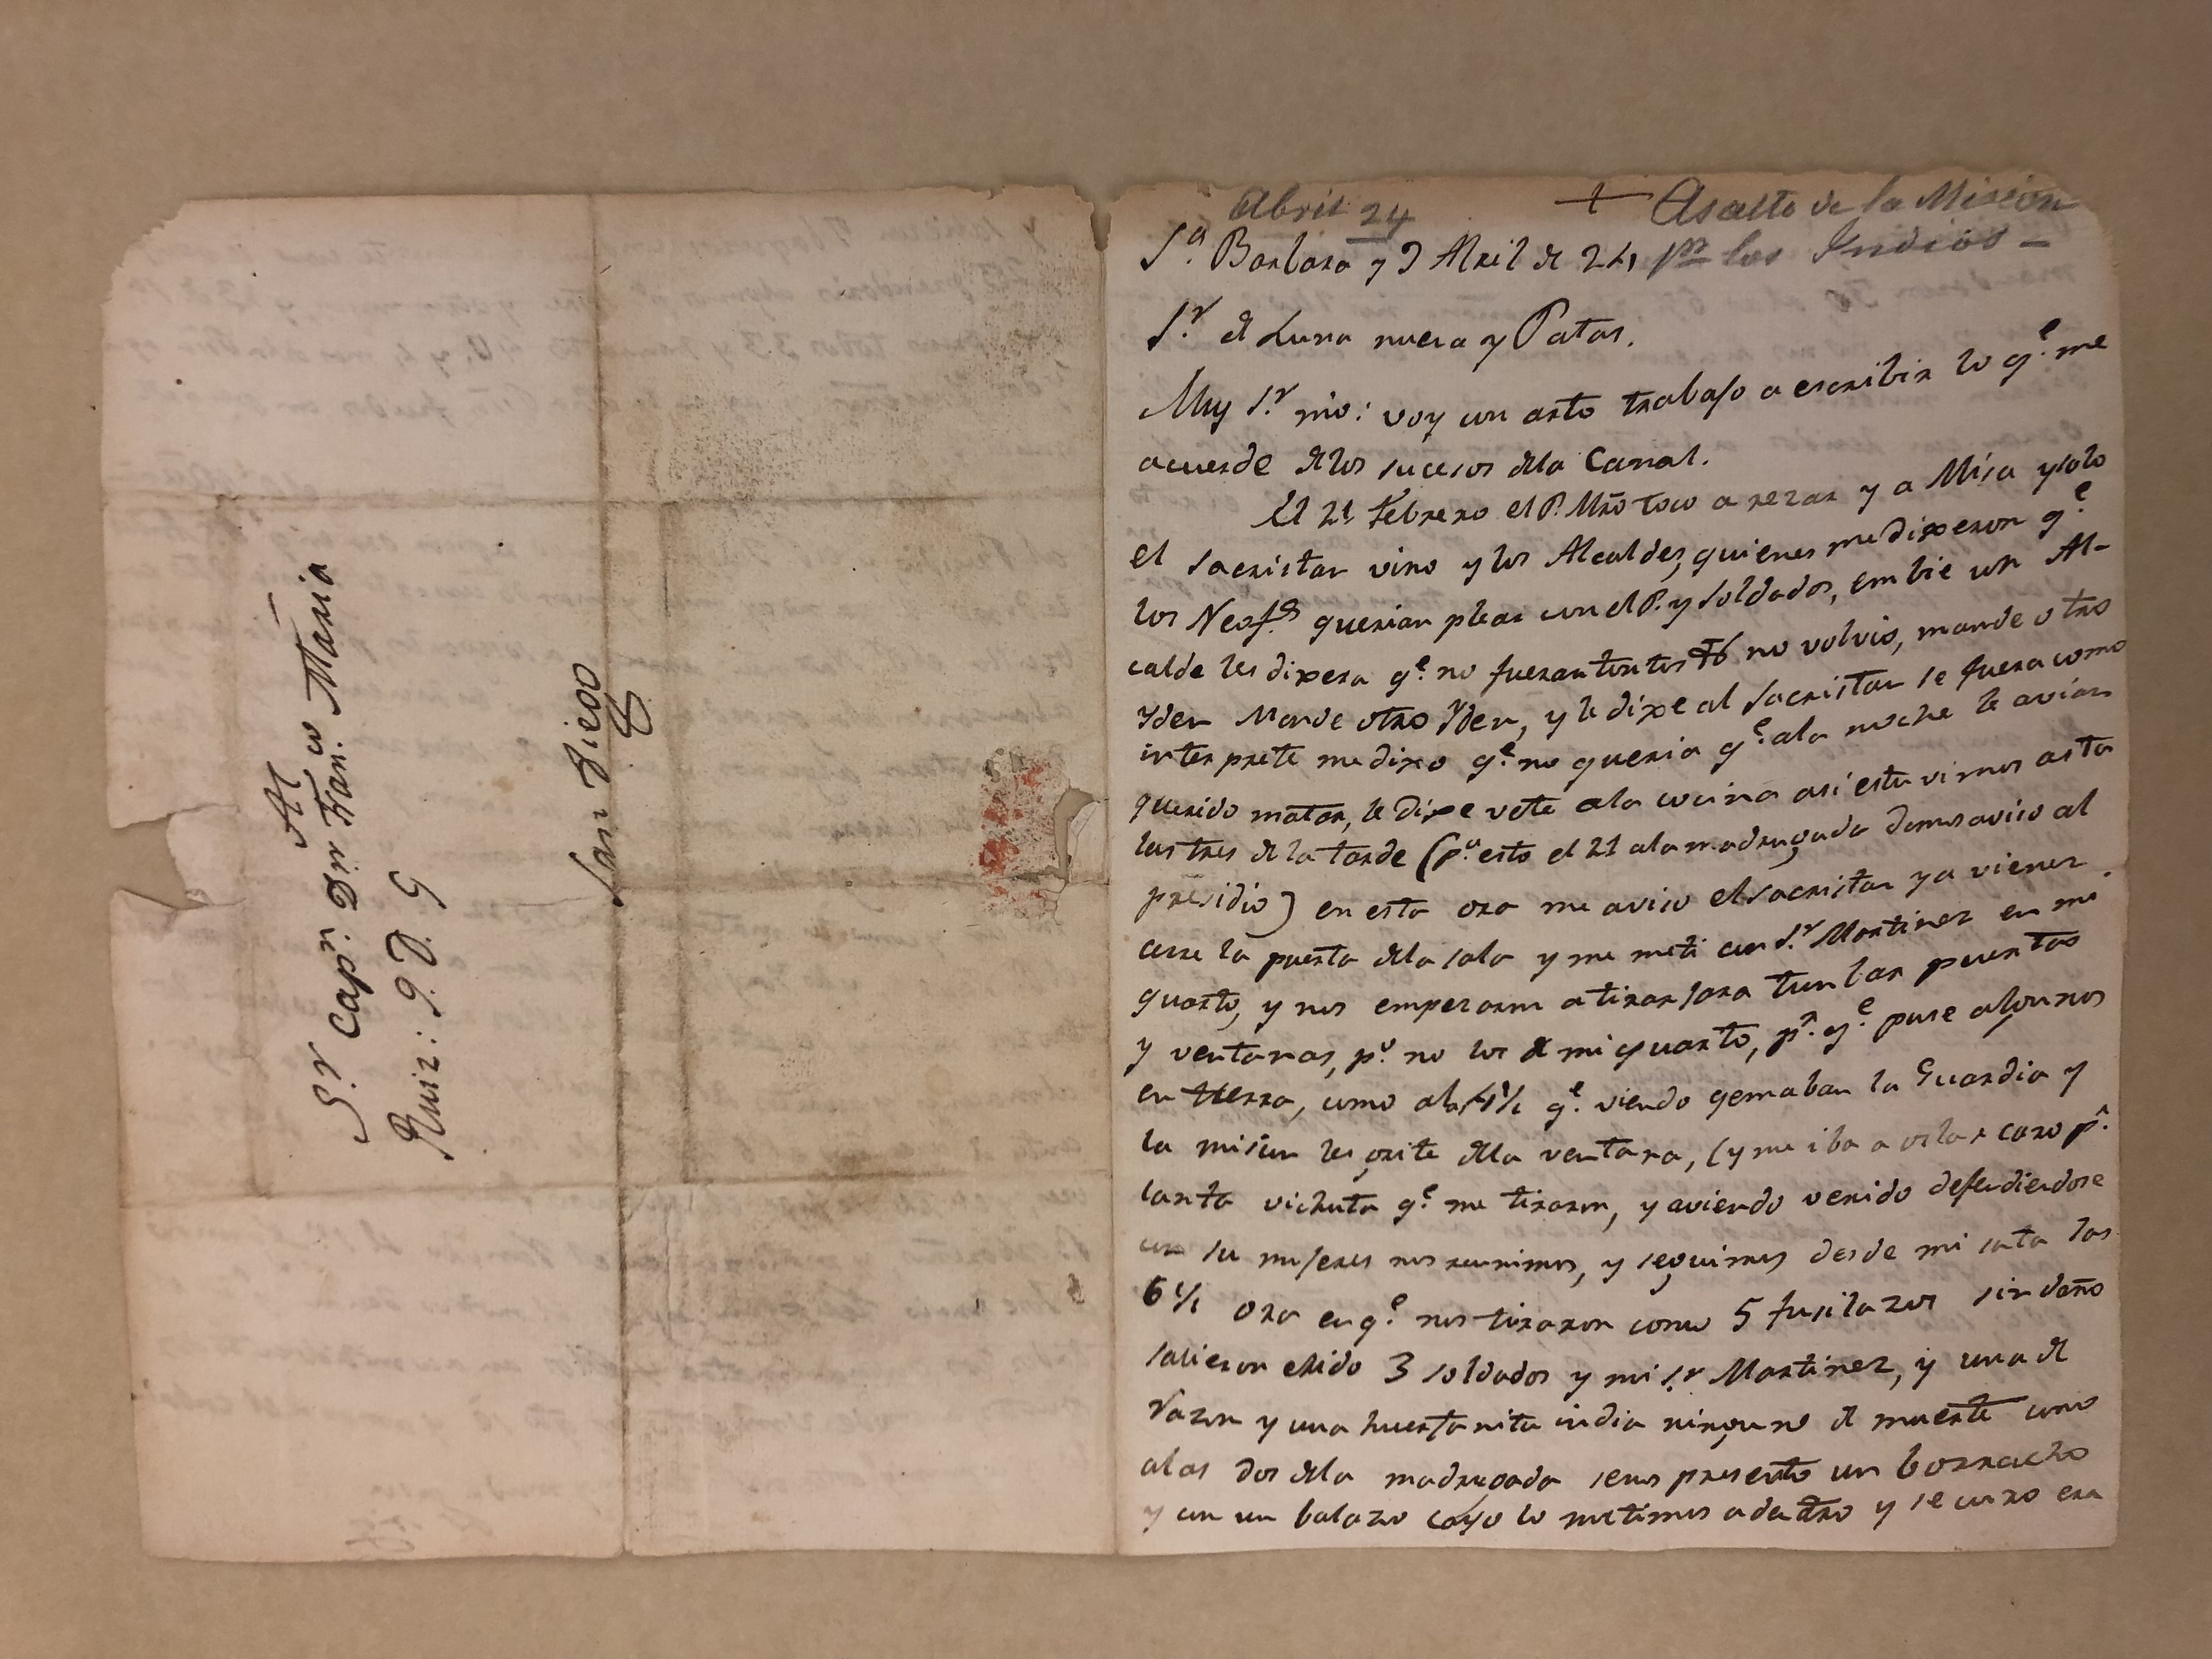 Al
Sr Capn. Dn Franco. Maria
Ruiz: q. D. G
San Diego
Abril 24 + Asalto de la Mision
Sa. Barbara y 9 Abril de 24, pr los Indios —
Sr. de Luna nueva y Patas.
Muy Sr. mio: voy con arto trabajo a escribir lo qe. me
acuerde de los sucesos de la Canal.
El 21 Febrero el P. Mro toco a rezar y a Misa y solo
el sacristan vino y los Alcaldes, quienes me dixeron qe.
los Neofs. querian plear con el P. y soldados, embie un Al-
calde les dixera qe. no fueran tontos no volvio, mande otro
Yden Mande otro Yden, y le dixe al sacristan se fuera como
interprete me dixo qe. no queria qe. ala noche le avian
querido matar, le dixe vete ala cocina asi estuvimos asta
las tres de la tarde (pa. esto el 21 ala madrugada demos aviso al
presidio) en esta ora me aviso el sacristan ya vienen
cerre la puerta de la sala y me meti con Sr. Martinez en mi
quarto, y nos empezaron a tirar para tumbar puertas
y ventanas, po. no los de mi quarto, pr. qe. puse algunos
en tierra, como alas 4½ qe. viendo qemaban la Guardia y
la mision les grite de la ventana, (y me iba a costar caro pr.
tanta qe. me tiraron, y aviendo venido defendiendose
con su mujeres nos reunimos, y seguimos desde mi sata las
6½ ora en qe. nos tiraron como 5 fusilazos sin daño
salieron erido 3 soldados y mi Sr Martinez, y una de
razon y una huerfanita india ninguno de muerte como
alas dos de la madrugada senos presento un borracho
y con un balazo cayo lo metimos adentro y se curo era